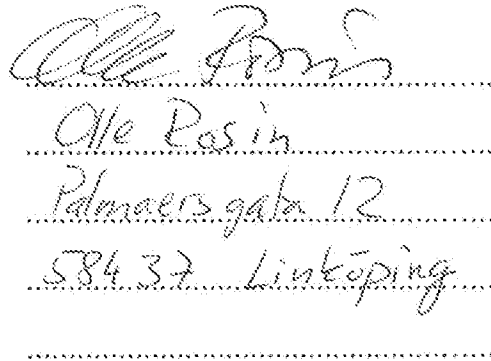 Olle Rosin
Olle Rosin
Palmaersgatan 12
58437 Linköping